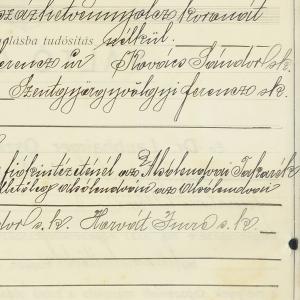 százhetvennyolcz koronát
lásba tudósítás nélkül.
ferencz úr Kovács Sándor sk.
Szentgyörgyvölgyi ferencz sk.
fiókintézeténél az Alsólendvai Takarék
illetőleg Alsólendván az alsólendvai
dor s. k. Horvát Imre s. k.